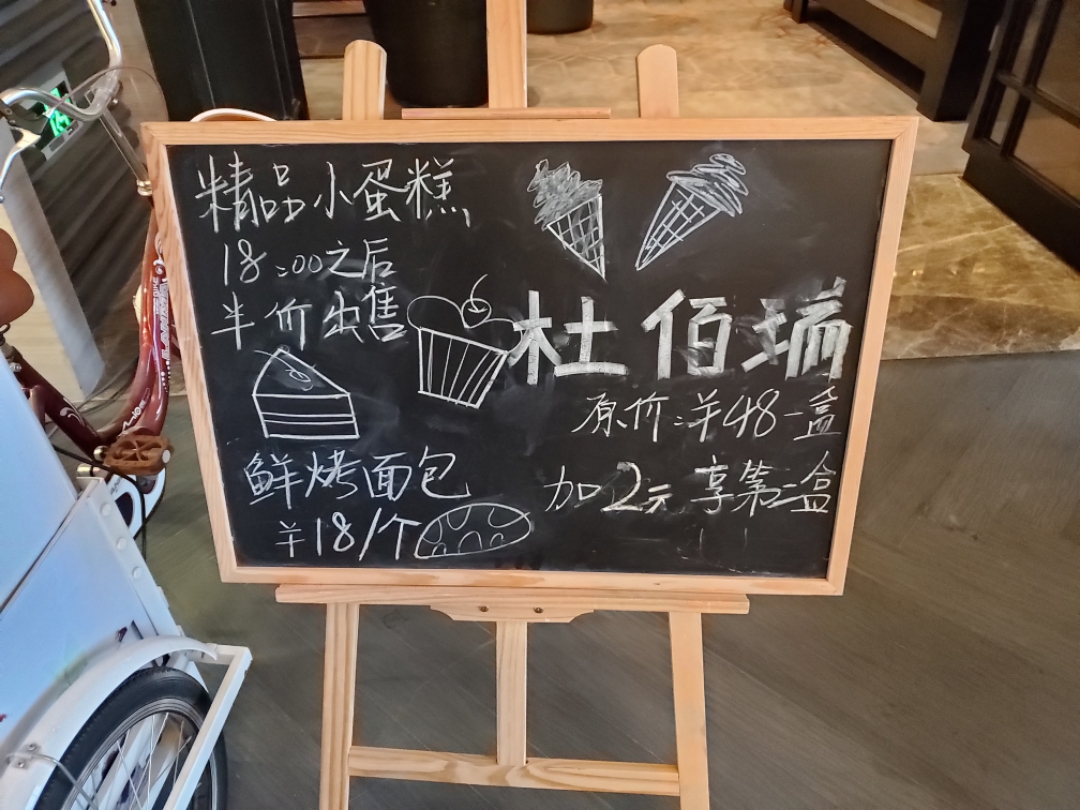 精品小蛋糕
18:00之后
半价出售
鲜烤面包
¥18/个
杜佰瑞
原价:¥48一盒
加2元 享第二盒